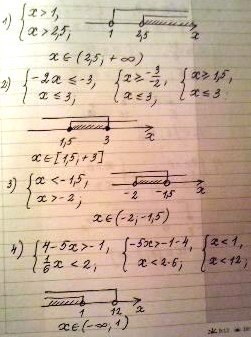 1) { x > 1, x > 2,5,
1 2,5 x
x ∈ (2,5, +∞)
2) { -2x ≤ -3, x ≤ 3, { x ≥ -3/-2, x ≤ 3, { x ≥ 1,5, x ≤ 3
1,5 3 x
x ∈ [1,5, +3]
3) { x < -1,5, x > -2,
-2 -1,5 x
x ∈ (-2; -1,5)
4) { 4-5x > -1, 1/6 x < 2, { -5x > -1-4, x < 2·6, { x < 1, x < 12,
1 12 x
x ∈ (-∞, 1)